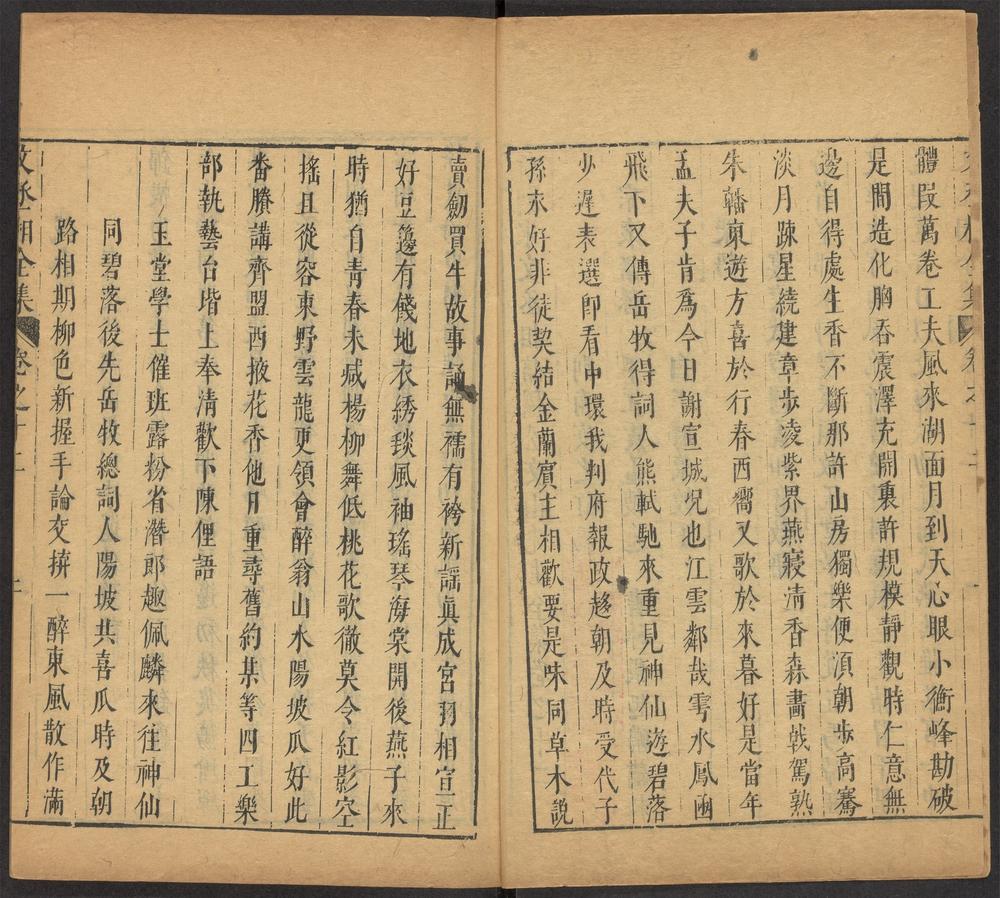 體段萬卷工夫風來湖面月到天心眼小衡峰勘破
是間造化胸吞震澤充開裏許規模靜觀時仁意無
邊自得處生香不斷那許山房獨樂便湏朝步高騫
淡月疎星繞建章步凌紫界燕寢清香森畵戟駕熟
朱轓東遊方喜於行春西嚮又歌於來暮好是當年
孟夫子肯爲今日謝宣城况也江雲鄰哉雩水鳳凾
飛下又傳岳牧得詞人熊軾馳來重見神仙遊碧落
少遲表選卽看中環我判府報政趍朝及時受代子
孫末好非徒契結金蘭賓主相歡要是味同草木說
賣劒買牛故事誦無襦有袴新謡眞成宮羽相宣正
好豆籩有餞地衣綉毯風袖瑤琴海棠開後燕子來
時猶自青春未减楊柳舞低桃花歌徹莫令紅影空
搖且從容東野雲龍更領會醉翁山水陽坡瓜好此
番賸講齊盟西掖花香他日重尋舊約某等四工樂
部執藝台堦上奉清歡下陳俚語
玉堂學士催班露粉省潛郎趣佩麟來往神仙
同碧落後先岳牧總詞人陽坡共喜瓜時及朝
路相期柳色新握手論交拚一醉東風散作滿
文丞相全集 卷之十二